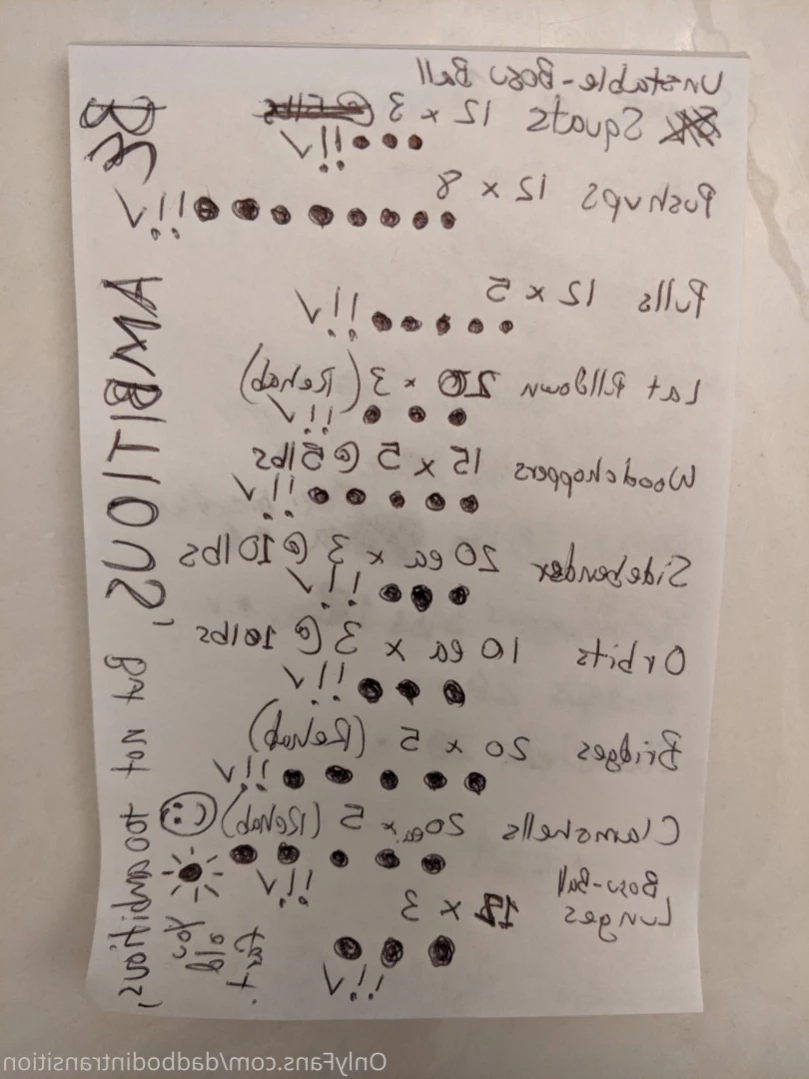 Unstable-Bosu Ball
Squats 12 x 3 @ 5 lbs
Pushups 12 x 8
Pulls 12 x 5
Lat Pulldown 20 x 3 (Rehab)
Woodchoppers 15 x 5 @ 5 lbs
Sidebender 20 ea x 3 @ 10 lbs
Orbits 10 ea x 3 @ 10 lbs
Bridges 20 x 5 (Rehab)
Clamshells 20 ea. x 5 (Rehab)
Bosu-Ball
Lunges 12 x 3
BE AMBITIOUS, But Not too ambitious,
You
old
fart.
OnlyFans.com/dadbodintransition